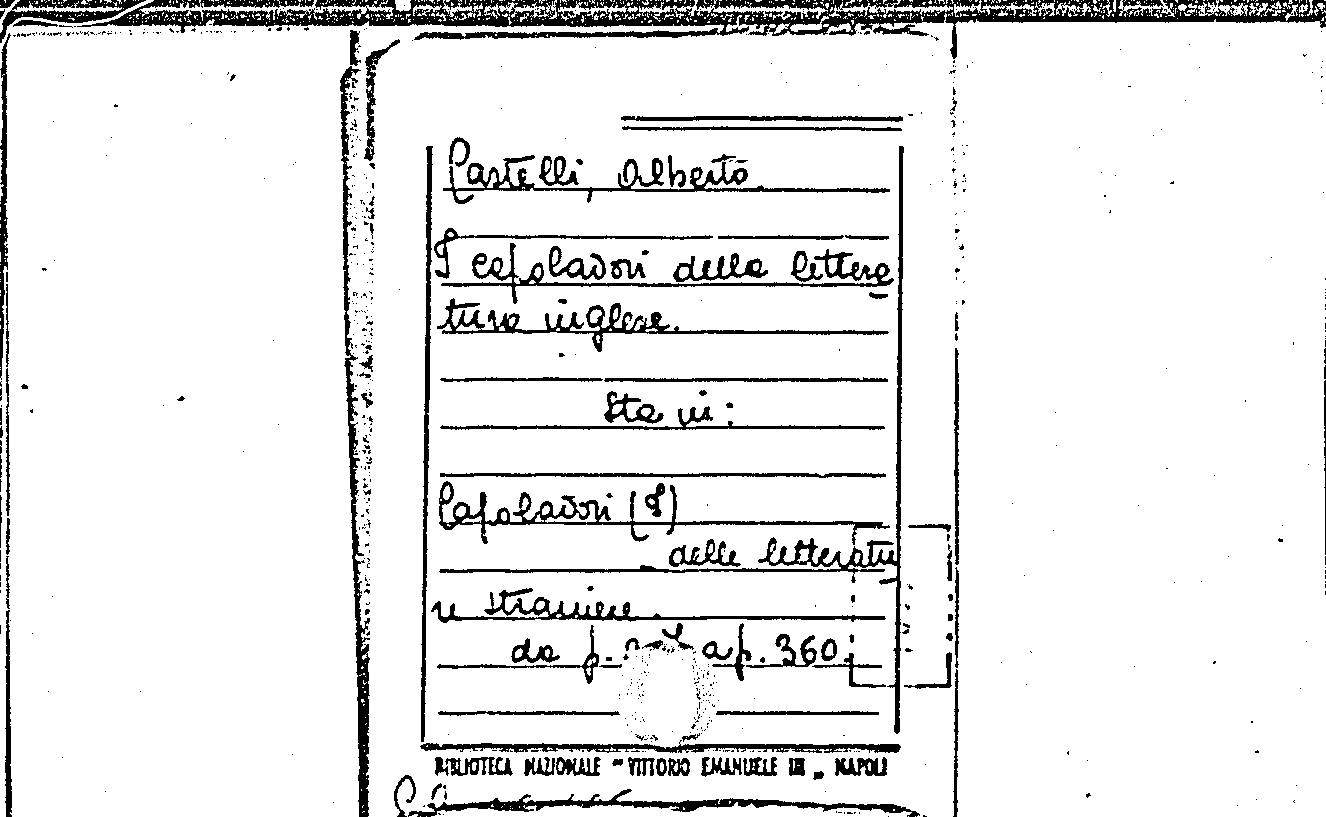 Castelli, Alberto.
I capolavori della lettera
tura inglese.
Sta in:
Capolavori (I)
delle letteratu
re straniere.
da p. a p. 360.
BIBLIOTECA NAZIONALE "VITTORIO EMANUELE III" NAPOLI